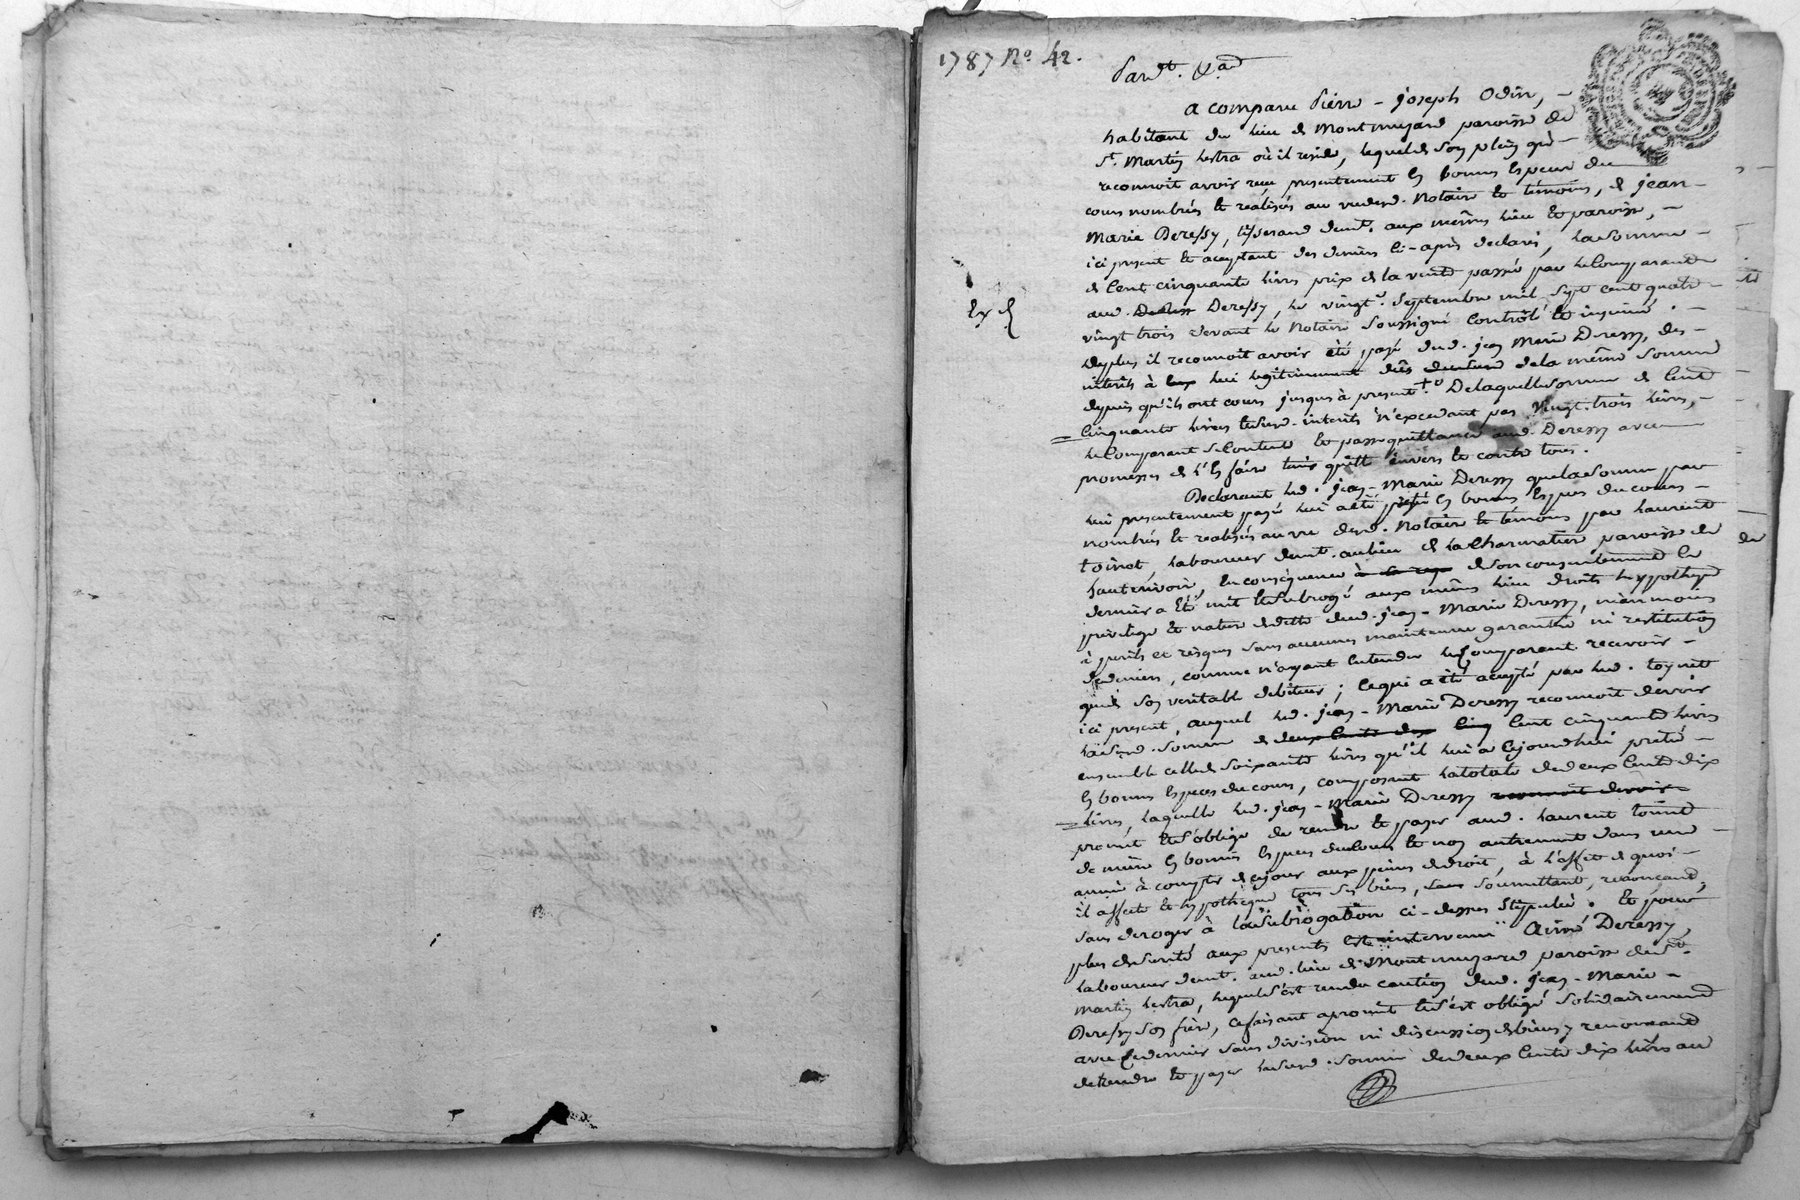 1787 No. 42.
Pard.t &.a
a comparu Pierre-joseph Odin,
habitant du lieu de Montmuzard paroisse de
St. Martin lestra où il reside, lequel de son plein gré
reconnoit avoir recu presentement En bonnes Especes du
cours nombrés Et realisés au vu desd. Notaire Et témoins, de jean-
Marie Deressy, tisserand demt. aux mêmes lieu Et paroisse,
ici present Et aceptant des deniers Ci-après declarés, la somme
de Cent cinquante livres prix de la vente passée par le Comparant
aud. Deressy, le vingt Septembre mil Sept Cent quatre
vingt trois devant le Notaire Soussigné Controlé Et insinué.
Deplus il reconnoit avoir été payé dud. jean Marie Deressy, des
interêts à lui legitimement dûs de la même Somme
depuis qu'ils ont cours jusques à present. De laquelle Somme de Cent
Cinquante livres Et desd. interêts n'excedant pas Vingt-trois livres,
le Comparant Se Contente Et passe quittance aud. Deressy avec
promesses de l'En faire tenir quitte Envers Et contre tous.
Declarant led. jean-Marie Deressy que la Somme par
lui presentement payé lui a été prêté En bonnes Especes du cours
nombrés Et realisés au vu desd. Notaire Et témoins par Laurent
toinet, Laboureur demt. au lieu de la Charmatier paroisse de
hauterivoir, En conséquence de Son consentement Ce
dernier a Eté mit Et Subrogé aux mêmes lieu droits hypotheque
privilege Et nature de dette dud. jean-Marie Deressy, néanmoins
à perils et risques Sans aucunes maintenue garantie ni restitution
de deniers, comme n'ayant Entendu le Comparant recevoir
que de Son veritable debiteur; Ce qui a été acepté par led. toynet
ici present, auquel led. jean-Marie Deressy reconnoit devoir
lasusd. Somme de Cent cinquante livres
ensemble celle de Soixante livres qu'il lui a Cejourd'hui preté
En bonnes Especes du cours, composant la totale de deux Cents dix
livres, laquelle led. jean-Marie Deressy reconnoit devoir
promet Et S'oblige de rendre Et payer aud. Laurent toinet
de même En bonnes Especes du Cours Et non autrement dans une
année à compter de Ce jour aux peines de droit, à l'Effet de quoi
il affecte Et hypotheque tous Ses biens, Sans Soumettant, renonçant,
Sans deroger à la Subrogation ci-dessus Stipulée. Et pour
plus de Sureté aux presents Est intervenu Aimé Deressy,
Laboureur demt. aud. lieu de Montmuzard paroisse dud. St.
Martin lestra, lequel S'est rendu caution dud. jean-Marie
Deressy Son frère, ce faisant a promit Et S'est obligé Solidairement
avec Ce dernier Sans division ni discussion de biens y renonçant
de Rendre Et payer lasusd. Somme de deux Cents dix livres au